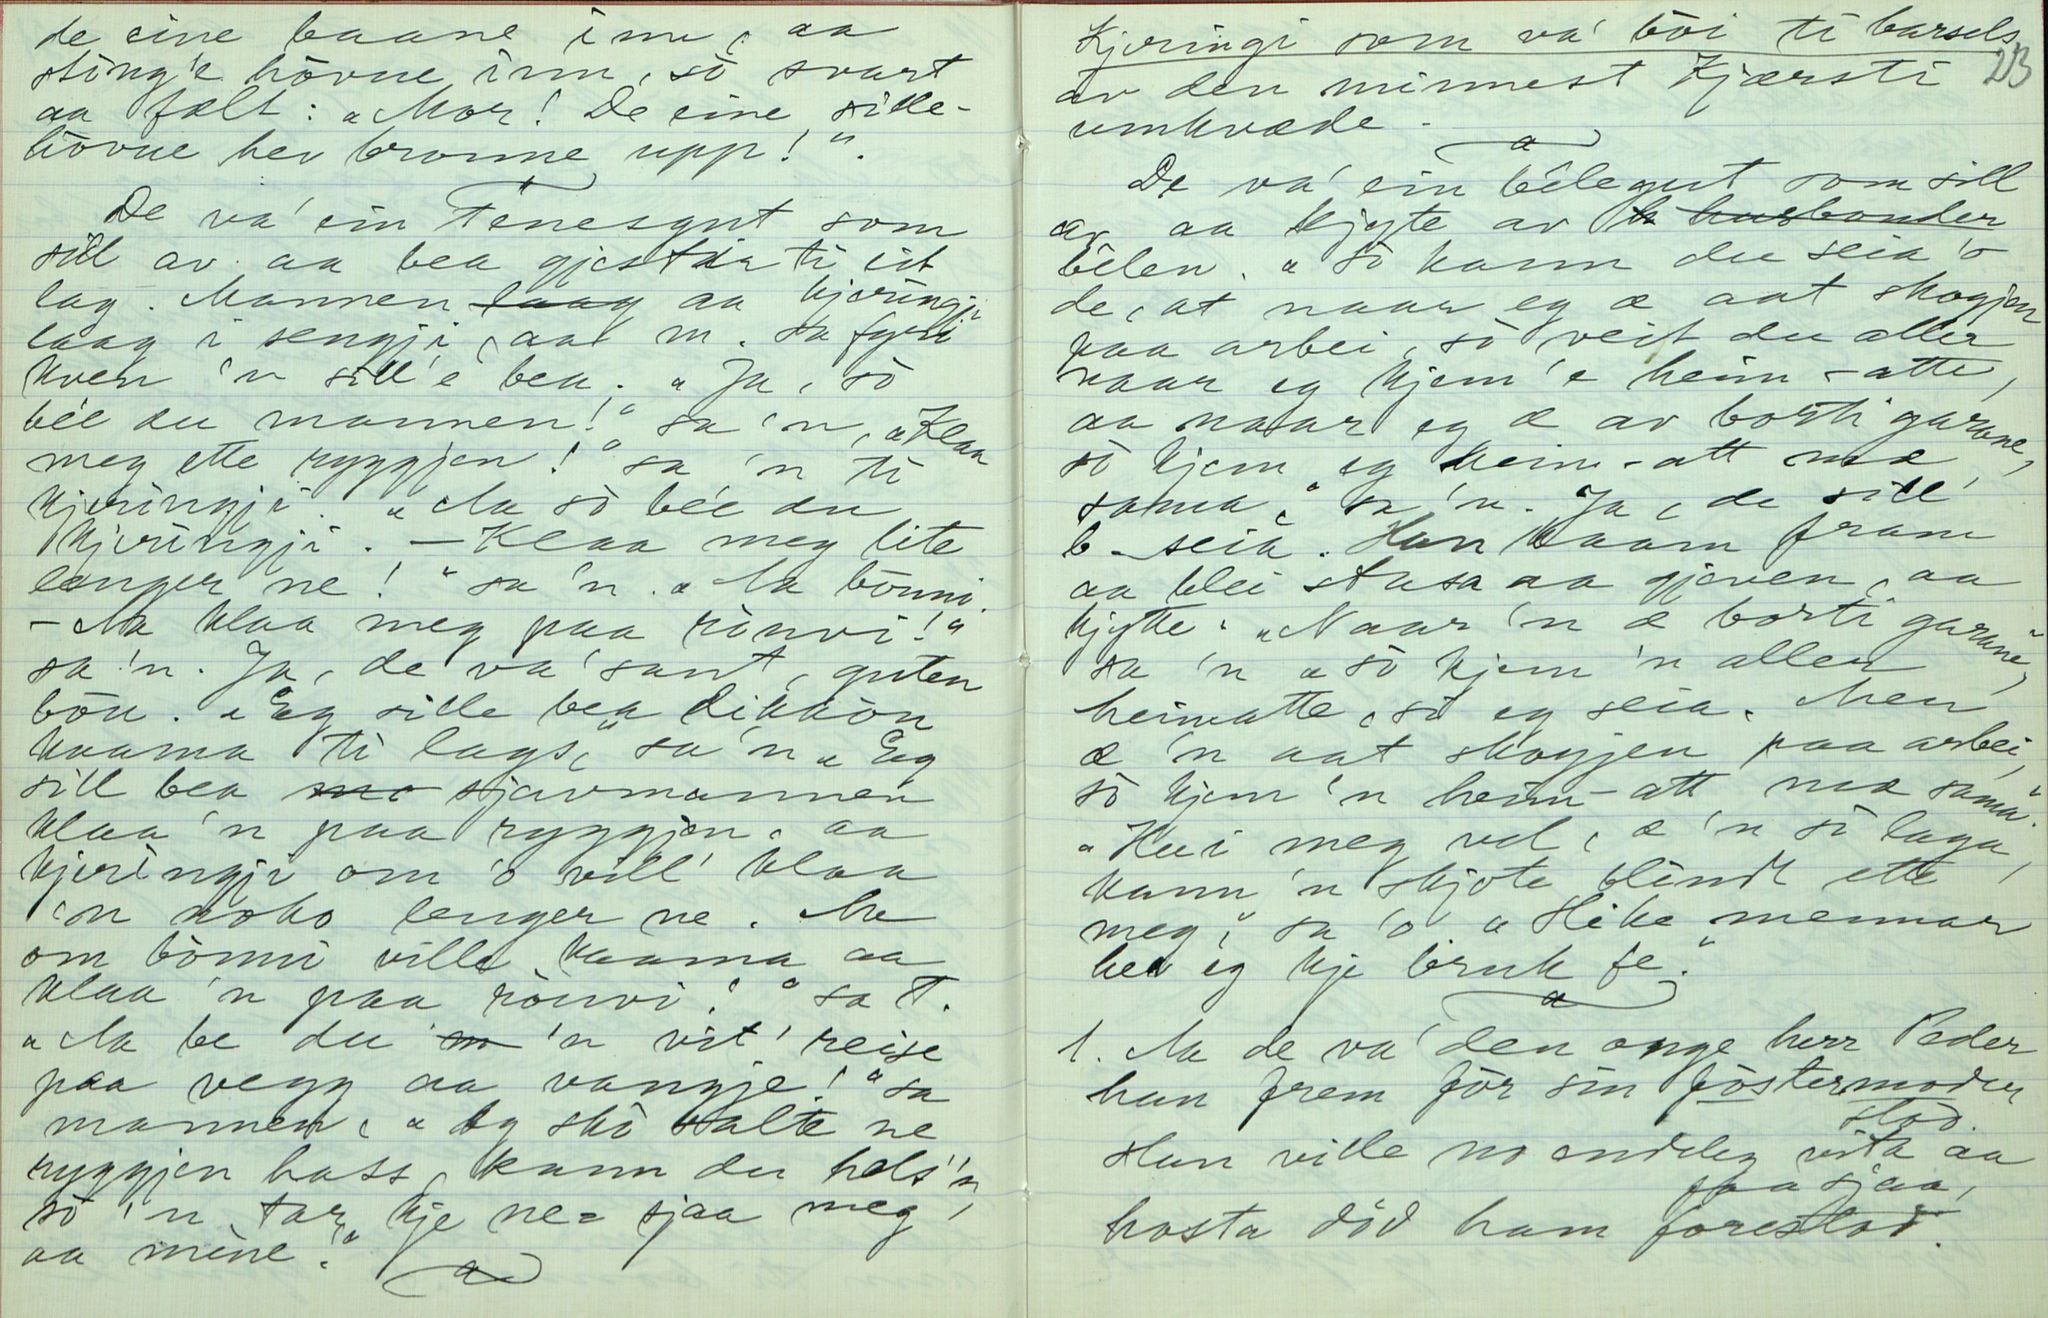 de eine baane inn, aa
sting'e hövue inn, sò svart
aa fælt: „Mor! De eine sille-
hövue hev bronne upp!".
De va' ein Tenesgut som
sill av aa bea gjestir ti eit
lag. Mannen laag aa kjeringji
laag i sengji, aa m. sa fyri
kven 'n sill'e bea. „Ja, sò
bée du mannen!" sa 'n, „Klaa
meg ette ryggjen!" sa 'n ti
kjeringji. „Aa sò bée du
kjeringji. – Klaa meg lite
lenger ne!" sa 'n. „Aa bönni.
– Aa klaa meg paa rauvi!"
sa 'n. Ja, de va' sant, guten
bön. „Eg sille bea dikkön
kaama ti lags," sa 'n „Eg
sill bea me sjavmannen
klaa 'n paa ryggjen, aa
kjeringji om 'o vill' klaa
'n noko lenger ne. Aa
om bönni ville kaama aa
klaa 'n paa rauvi." sa T.
„Aa be du m 'n vit' reise
paa vegg aa vangje!" sa
mannen, „Eg skò salte ne
ryggjen hass, kann du hels''n,
sò 'n tar kje ne= sjaa meg
aa mine."
Kjeringi som va' böi ti barsels
213
av den minnest Kjærsti
umkvæde.
De va' ein bélegut som sill
av aa kjyte av h husbonder
bélen. „Sò kann du seia 'o
de, at naar eg æ aat skogjen
paa arbei, sò veit du aller
naar eg kjem'e heim-atte,
aa naar eg æ av borti garane,
sò kjem eg heim-att mæ
sama," sa 'n. Ja, de sill'
b-seia. Han kaam fram
aa blei stasa aa gjeven, aa
kjytte. „Naar 'n æ borti garane,
sa 'n „sò kjem 'n aller
heimatte, sò eg seia. Men
æ 'n aat skogjen paa arbei,
sò kjem 'n heim-att mæ sama.
„Hui meg vel, æ 'n sò laga,
kann 'n skjote blindt ette
meg," sa 'o „Slike mennar
hev eg kje bruk fe."
1. Aa de va' den onge herr Peder
han frem för sin föstermoder
stod.
Han ville no endeleg vita aa
faa sjaa,
hosta död ham forestod.